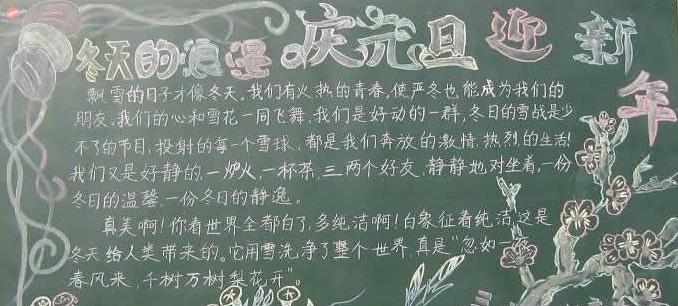 冬天的浪漫 庆元旦迎新年
飘雪的日子才像冬天。我们有火热的青春，使严冬也能成为我们的
朋友。我们的心和雪花一同飞舞。我们是好动的一群，冬日的雪战是少
不了的节目，投射的每一个雪球，都是我们奔放的激情，热烈的生活！
我们又是好静的，一炉火，一杯茶，三两个好友，静静地对坐着，一份
冬日的温馨，一份冬日的静逸。
真美啊！你看世界全都白了，多纯洁啊！白象征着纯洁，这是
冬天给人类带来的。它用雪洗净了整个世界，真是“忽如一夜
春风来，千树万树梨花开”。